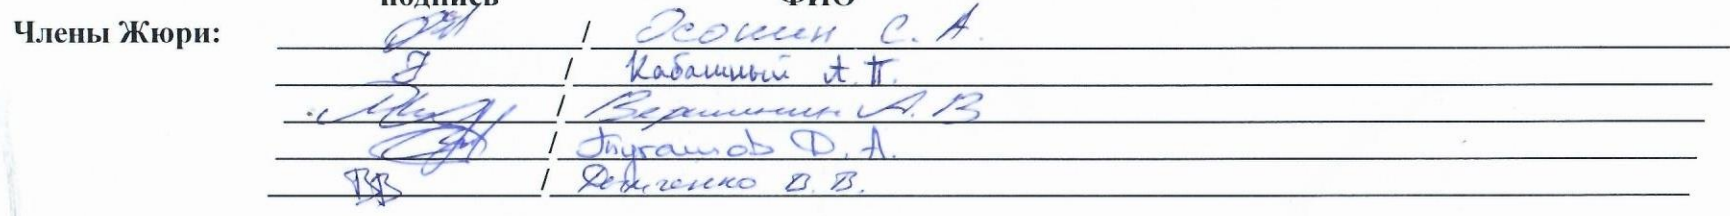 подпись ФИО
Члены Жюри: / Осокин С. А.
/ Кабашный А. П.
/ Вершинин А. В
/ Д. А.
/ Демченко В. В.